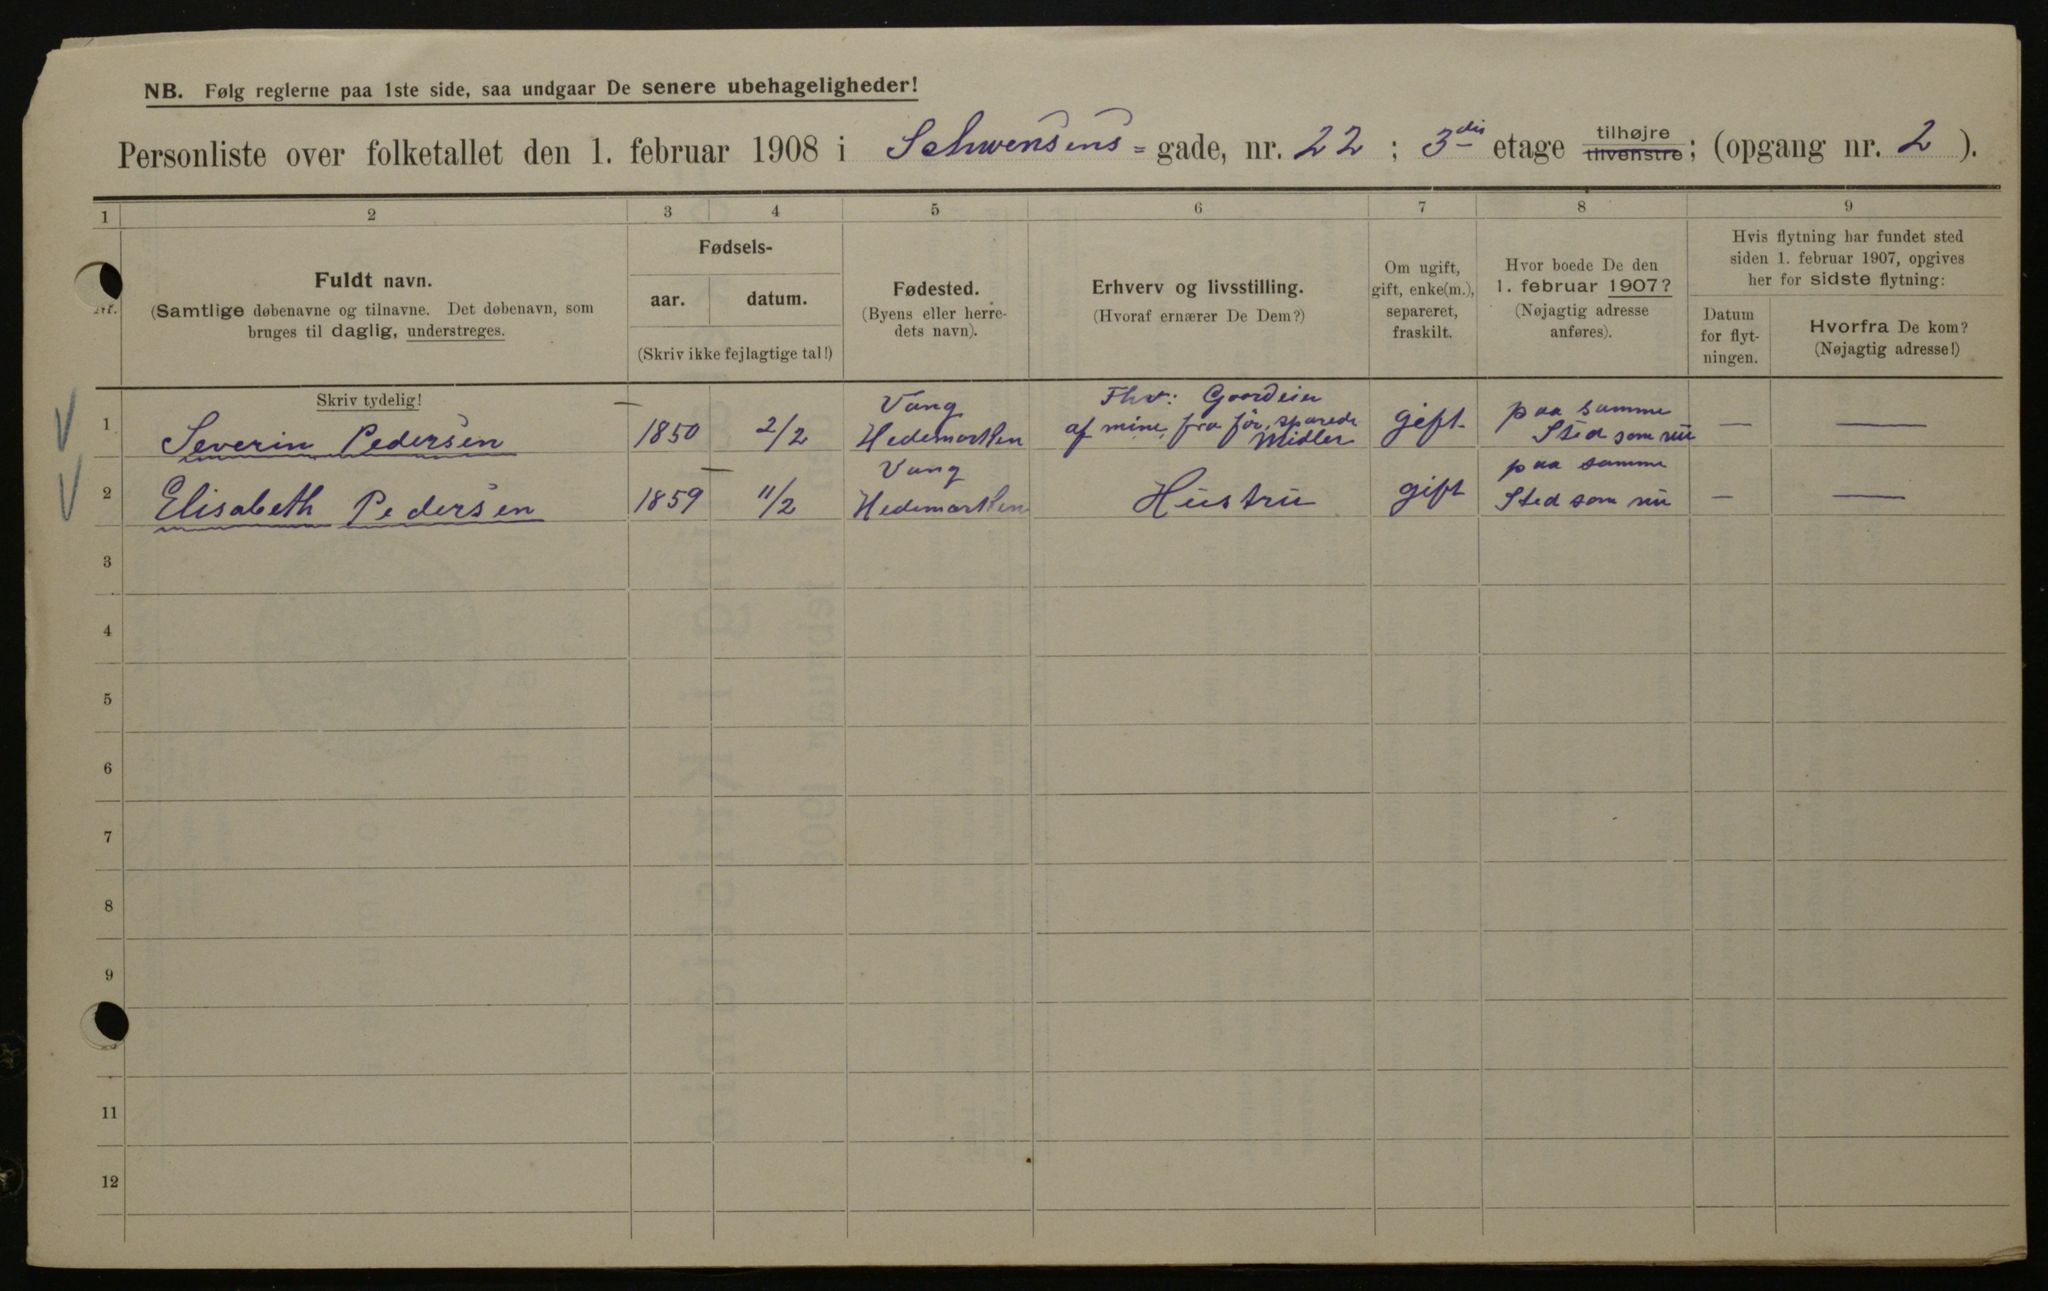 NB. Følg reglerne paa 1ste side, saa undgaar De senere ubehageligheder!
Personliste over folketallet den 1. februar 1908 i Schwensens=gade, nr. 22; 3die etage tilhøjre tilvenstre; (opgang nr. 2).
1 2 3 4 5 6 7 8 9
Nr.
Fuldt navn.
(Samtlige døbenavne og tilnavne. Det døbenavn, som
bruges til daglig, understreges.
Fødsels-
aar. datum.
(Skriv ikke fejlagtige tal!)
Fødested.
(Byens eller herre-
dets navn).
Erhverv og livsstilling.
(Hvoraf ernærer De Dem?)
Om ugift,
gift, enke(m.),
separeret,
fraskilt.
Hvor boede De den
1. februar 1907?
(Nøjagtig adresse
anføres).
Hvis flytning har fundet sted
siden 1. februar 1907, opgives
her for sidste flytning:
Datum
for flyt-
ningen.
Hvorfra De kom?
(Nøjagtig adresse!)
Skriv tydelig!
1 Severin Pedersen 1850 2/2
Vang
Hedemarken
Fhv: Gaardeier
af mine fra før, sparede
Midler
gift
paa samme
Sted som nu
— —
2 Elisabeth Pedersen 1859 11/2
Vang
Hedemarken
Hustru
gift
paa samme
Sted som nu
— —
3
4
5
6
7
8
9
11
12